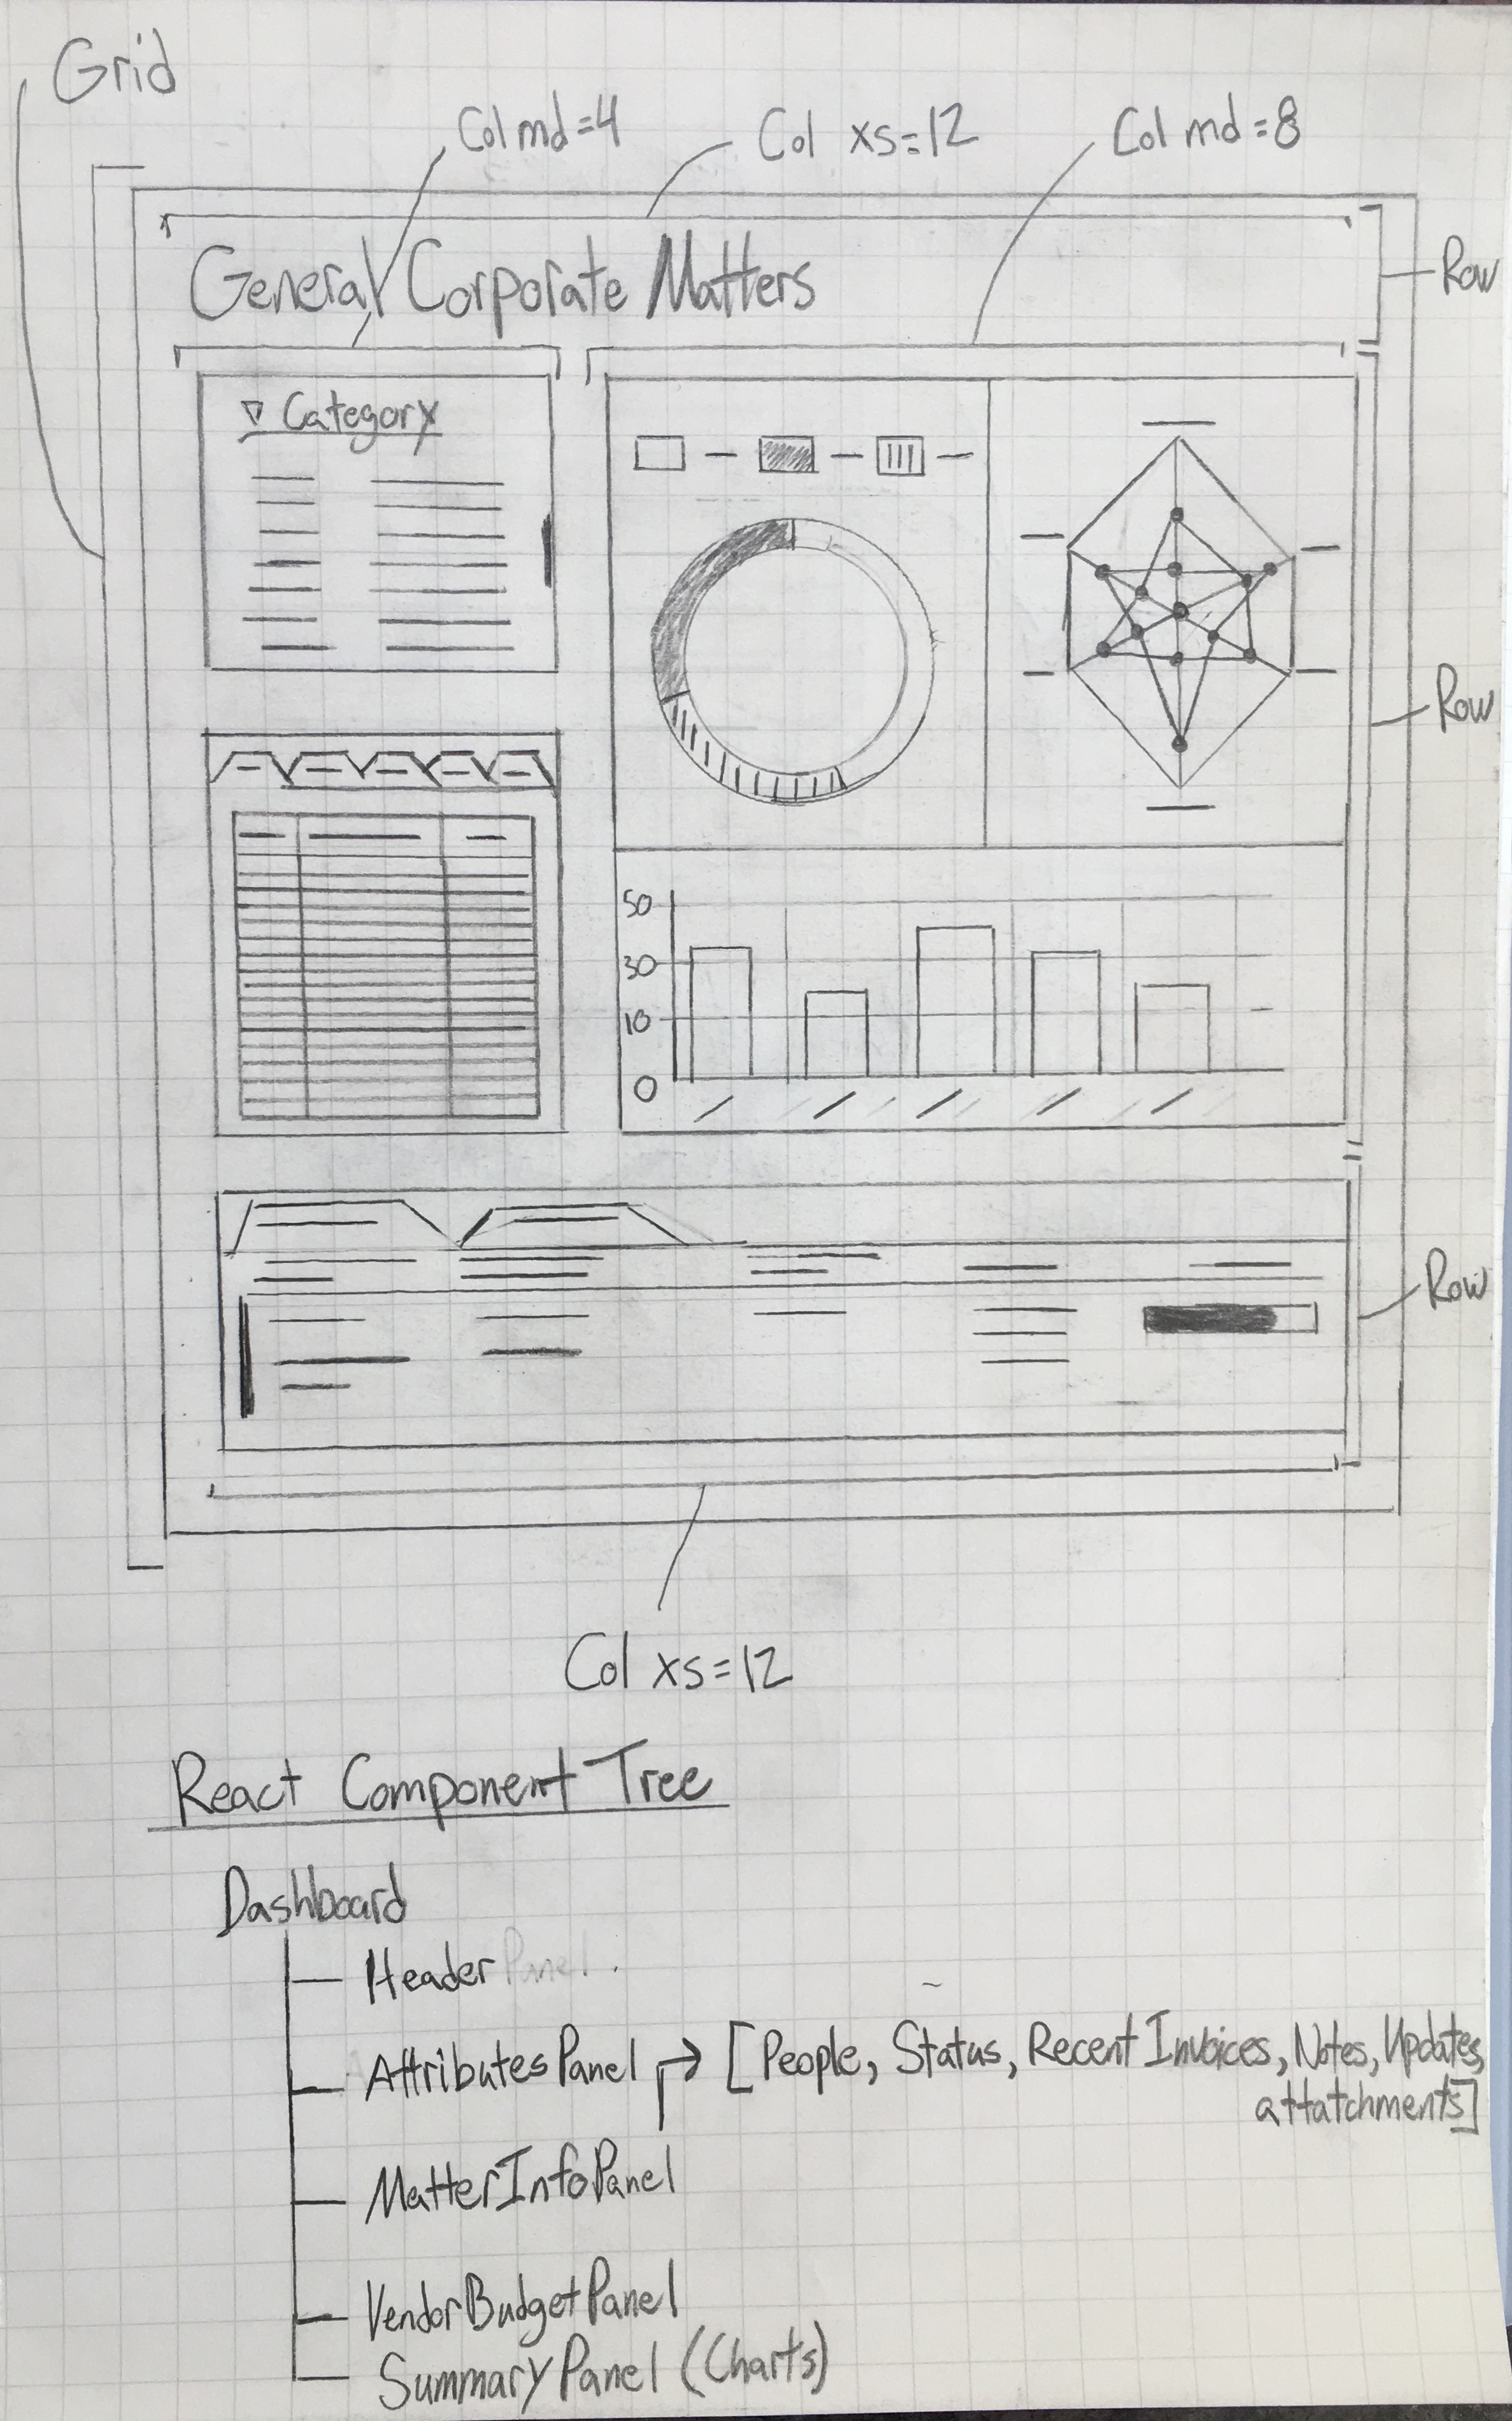 Grid
Col md=4
Col xs=12
Col md=8
General Corporate Matters
Row
▽ Category
Row
50
30
10
0
Row
Col xs=12
React Component Tree
Dashboard
Header Panel
AttributesPanel
[People, Status, Recent Invoices, Notes, Updates,
attatchments]
MatterInfoPanel
VendorBudgetPanel
SummaryPanel (Charts)